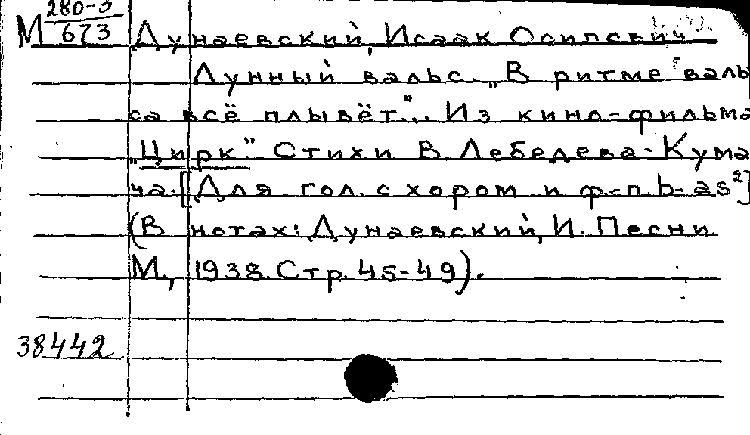 280-3
М 673 Дунаевский, Исаак Осипович
Лунный вальс. „В ритме валь
са всё плывёт"... Из кино-фильма
„Цирк". Стихи В. Лебедева-Кума
ча. [Для гол. с хором и ф-п. b-as²]
(В нотах: Дунаевский, И. Песни
М., 1938. Стр. 45-49).
38442